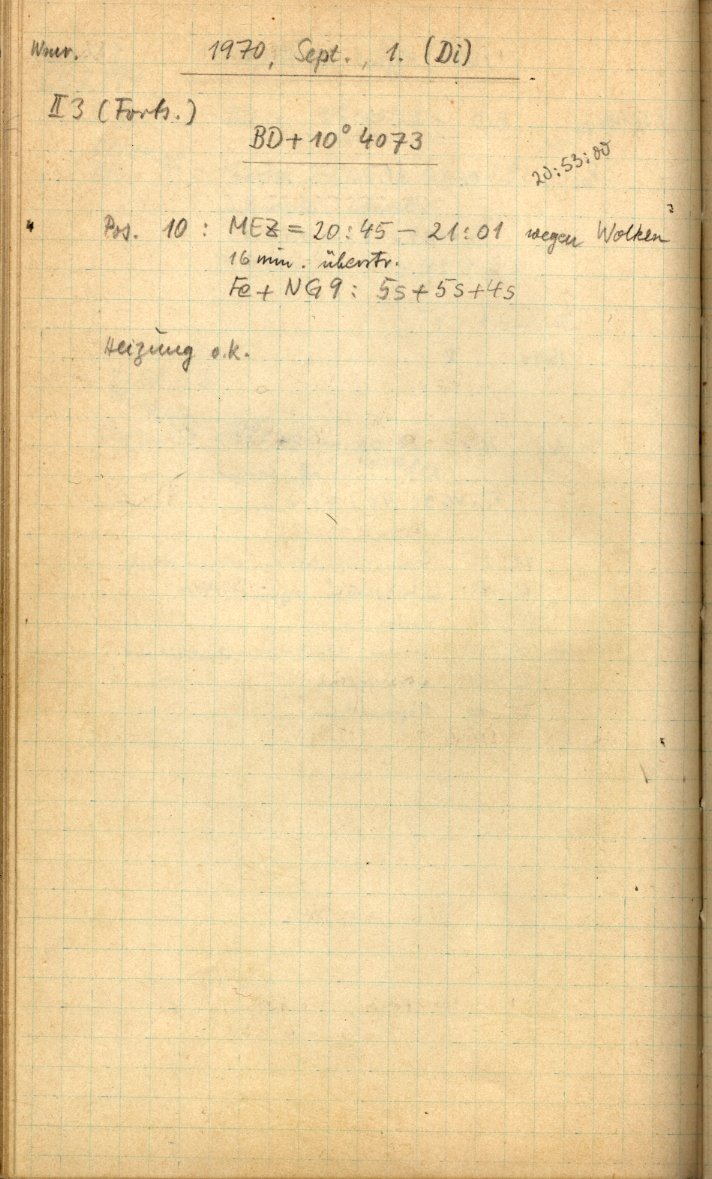 1970, Sept., 1. (Di)
II 3 (Forts.)
BD+10° 4073
20:53:00
Pos. 10 : MEZ = 20:45 – 21:01 wegen Wolken
16 min. überstr.
Fe + NG9 : 5s + 5s + 4s
Heizung o.k.